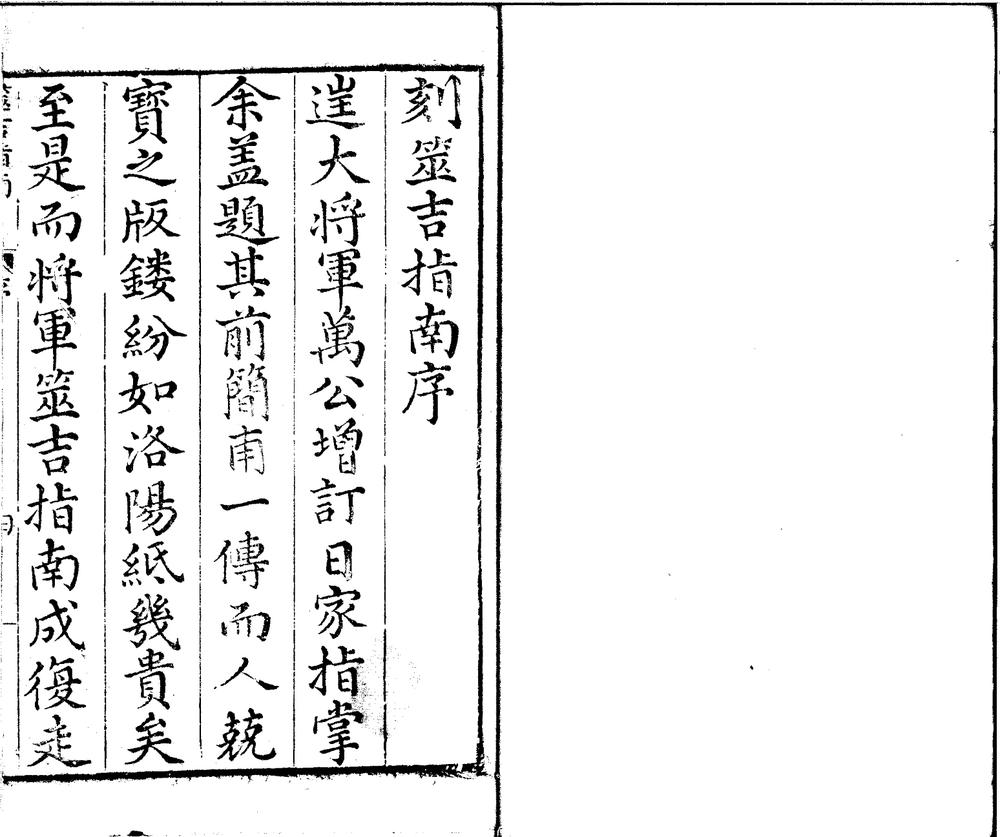 刻筮吉指南序
大将軍萬公增訂日家指掌
余盖題其前簡甫一傳而人兢
寶之版鏤紛如洛陽紙幾貴矣
至是而将軍筮吉指南成復走